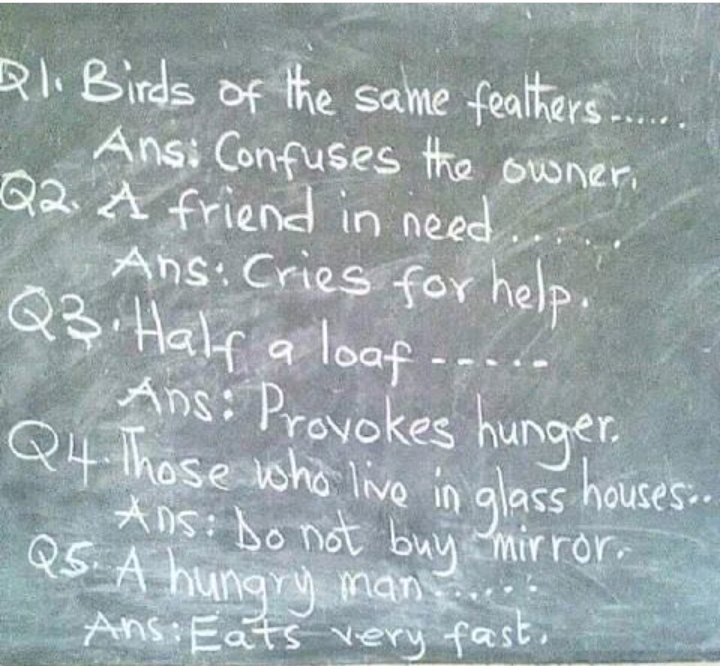 Q1. Birds of the same feathers......
Ans: Confuses the owner.
Q2. A friend in need......
Ans: Cries for help.
Q3. Half a loaf -----
Ans: Provokes hunger.
Q4. Those who live in glass houses...
Ans: Do not buy mirror.
Q5. A hungry man......
Ans: Eats very fast.